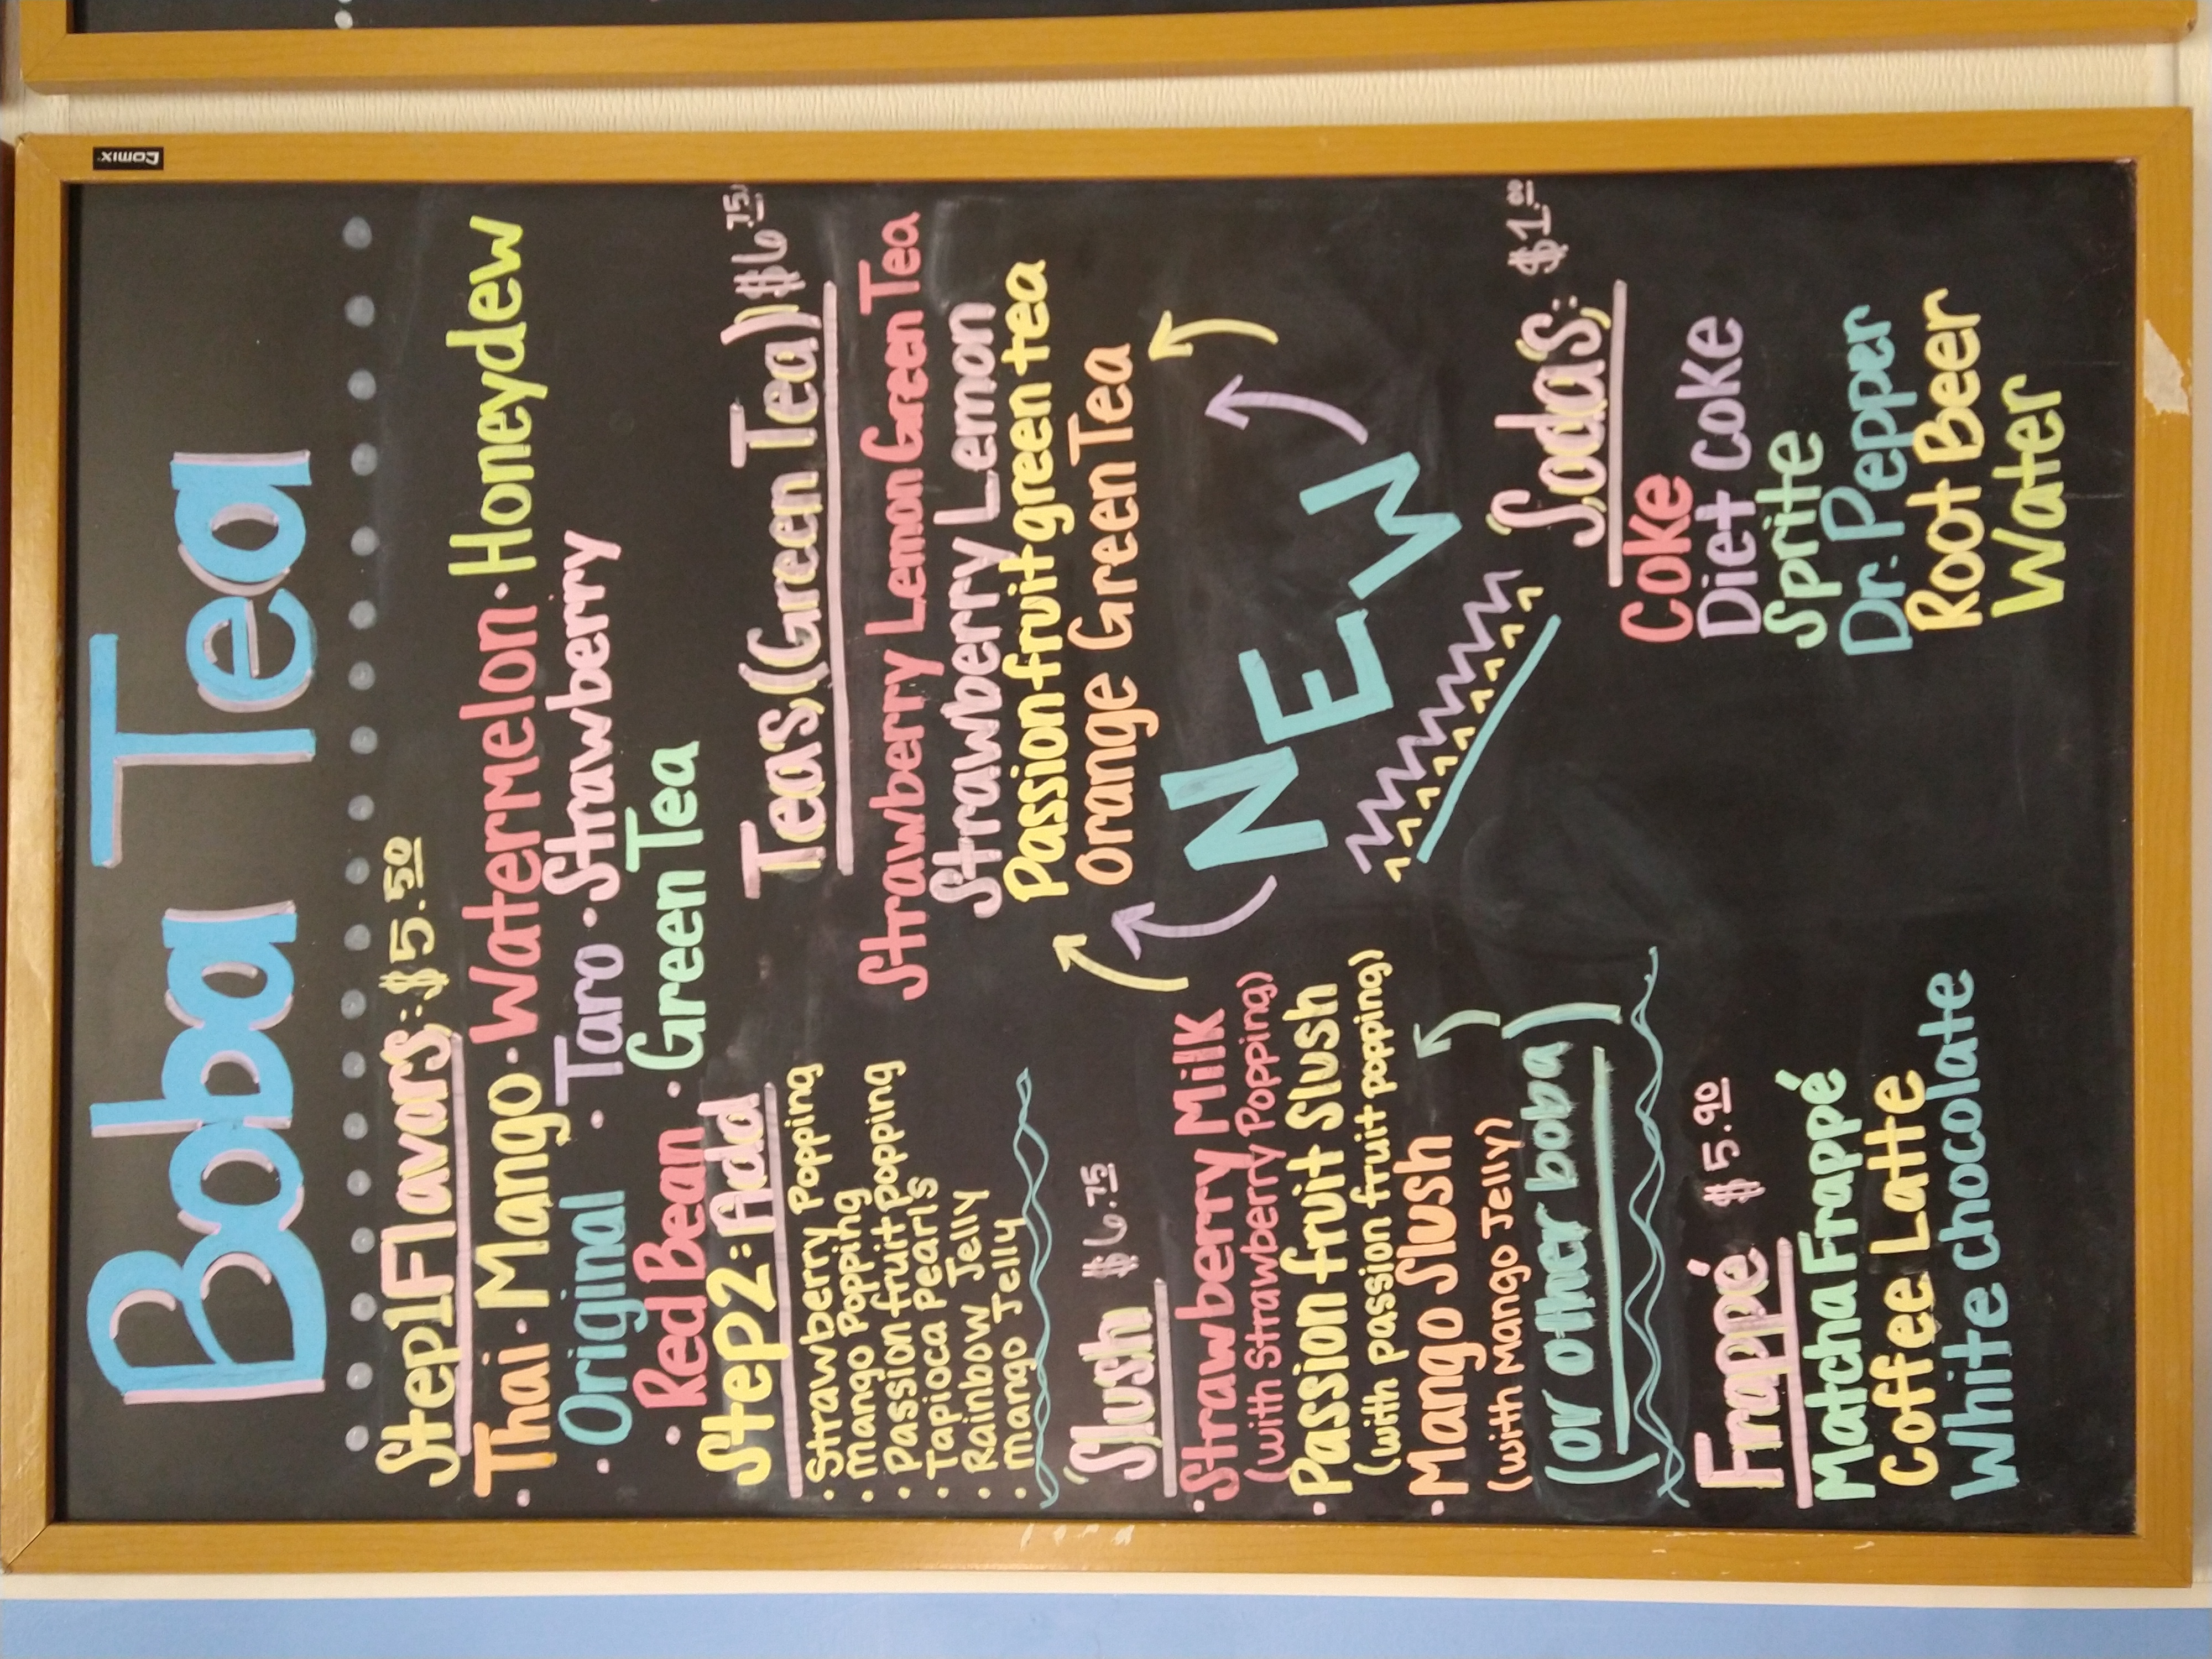 comix
Boba Tea
Step1Flavors: $5.50
· Thai · Mango · Watermelon · Honeydew
· Original · Taro · Strawberry
· Red Bean · Green Tea
Step2: Add
· Strawberry Popping
· Mango Popping
· Passion fruit Popping
· Tapioca Pearls
· Rainbow Jelly
· Mango Jelly
Teas (Green Tea) $6.75
Strawberry Lemon Green Tea
Strawberry Lemon
Passionfruit green tea
Orange Green Tea
NEW
Slush $6.75
· Strawberry Milk
(with Strawberry Popping)
· Passion fruit Slush
(with passion fruit popping)
· Mango Slush
(with Mango Jelly)
(or other boba)
Frappé $5.90
Matcha Frappé
Coffee Latte
White chocolate
Sodas: $1.00
Coke
Diet Coke
Sprite
Dr. Pepper
Root Beer
Water